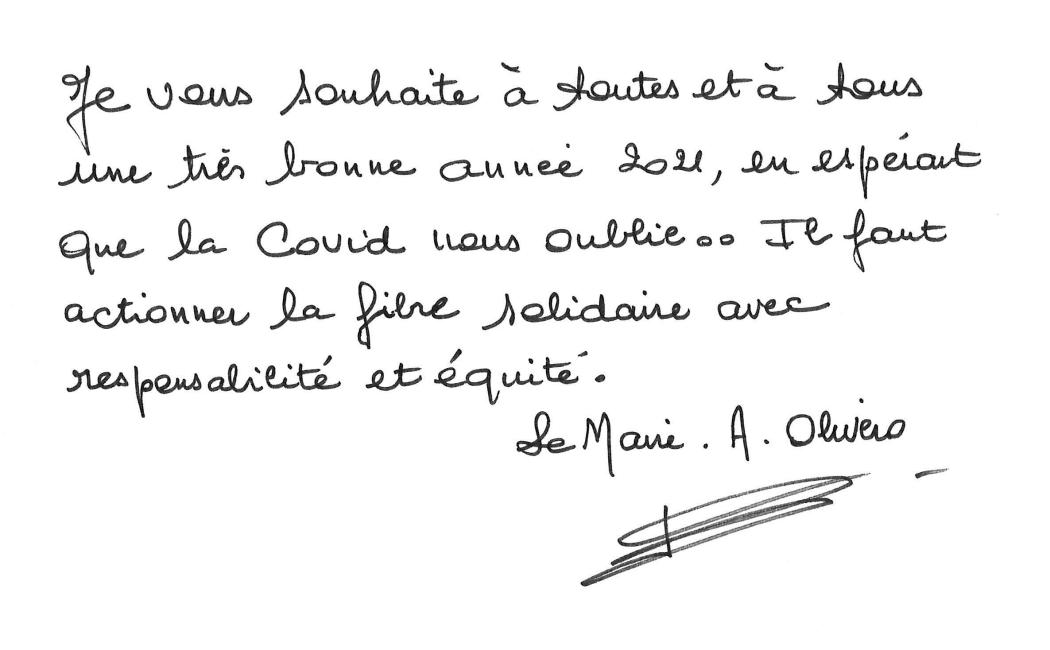 Je vous souhaite à toutes et à tous
une très bonne année 2021, en espérant
que la Covid nous oublie... Il faut
actionner la fibre solidaire avec
responsabilité et équité.
Le Maire. A. Olivero